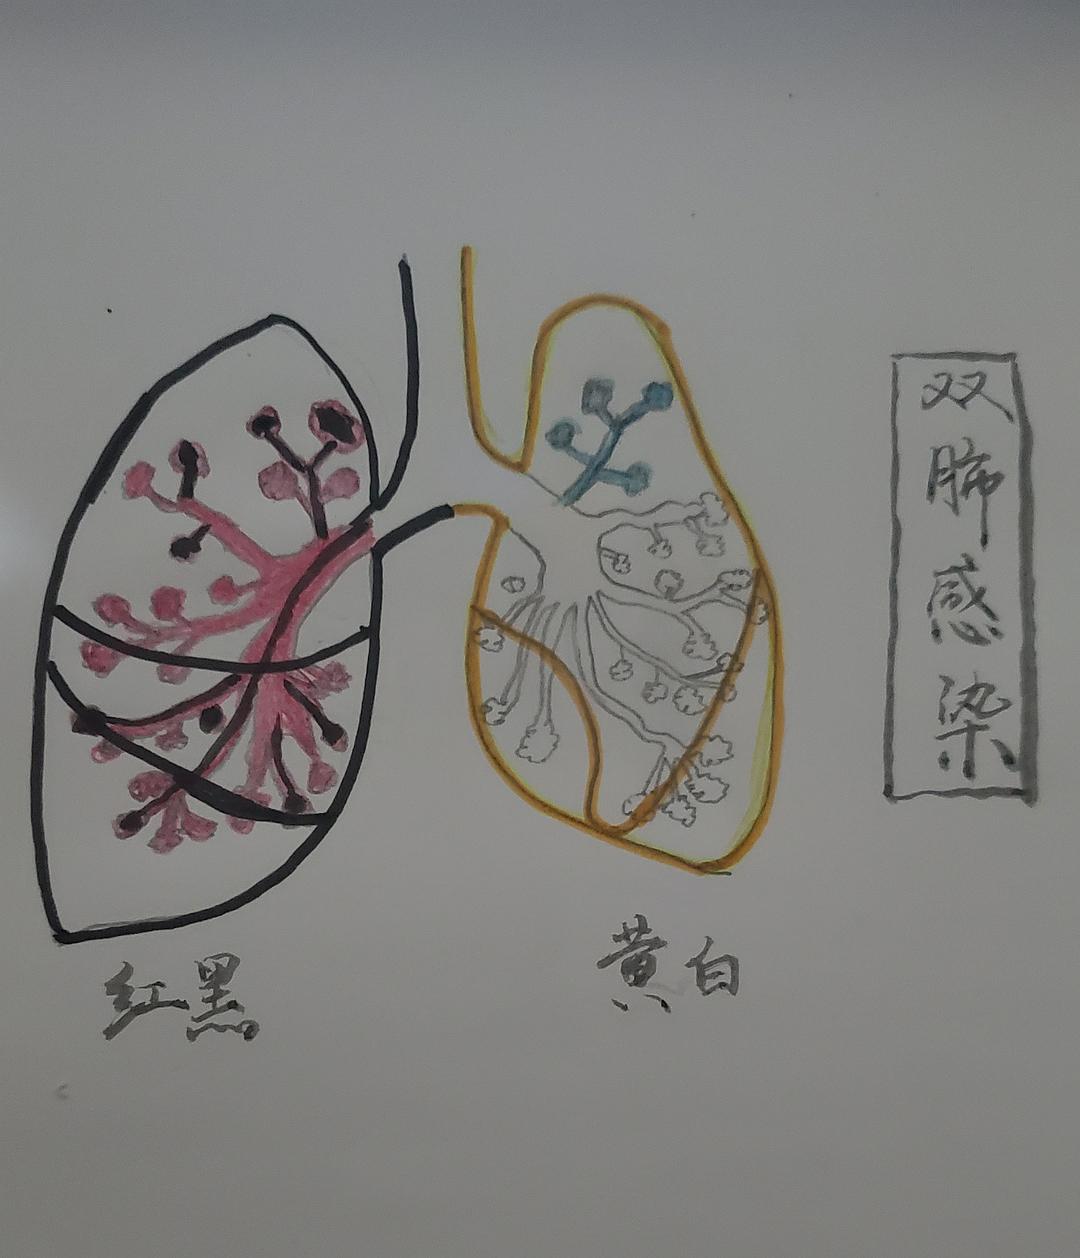 双肺感染
红黑
黄白